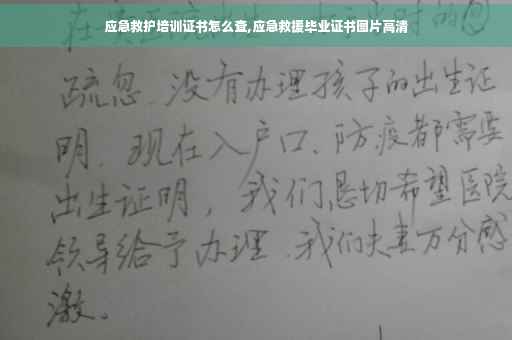 应急救护培训证书怎么查,应急救援毕业证书图片高清
疏忽、没有办理孩子的出生证
明、现在入户口、防疫都需要
出生证明，我们恳切希望医院
领导给予办理、我们夫妻万分感
激。